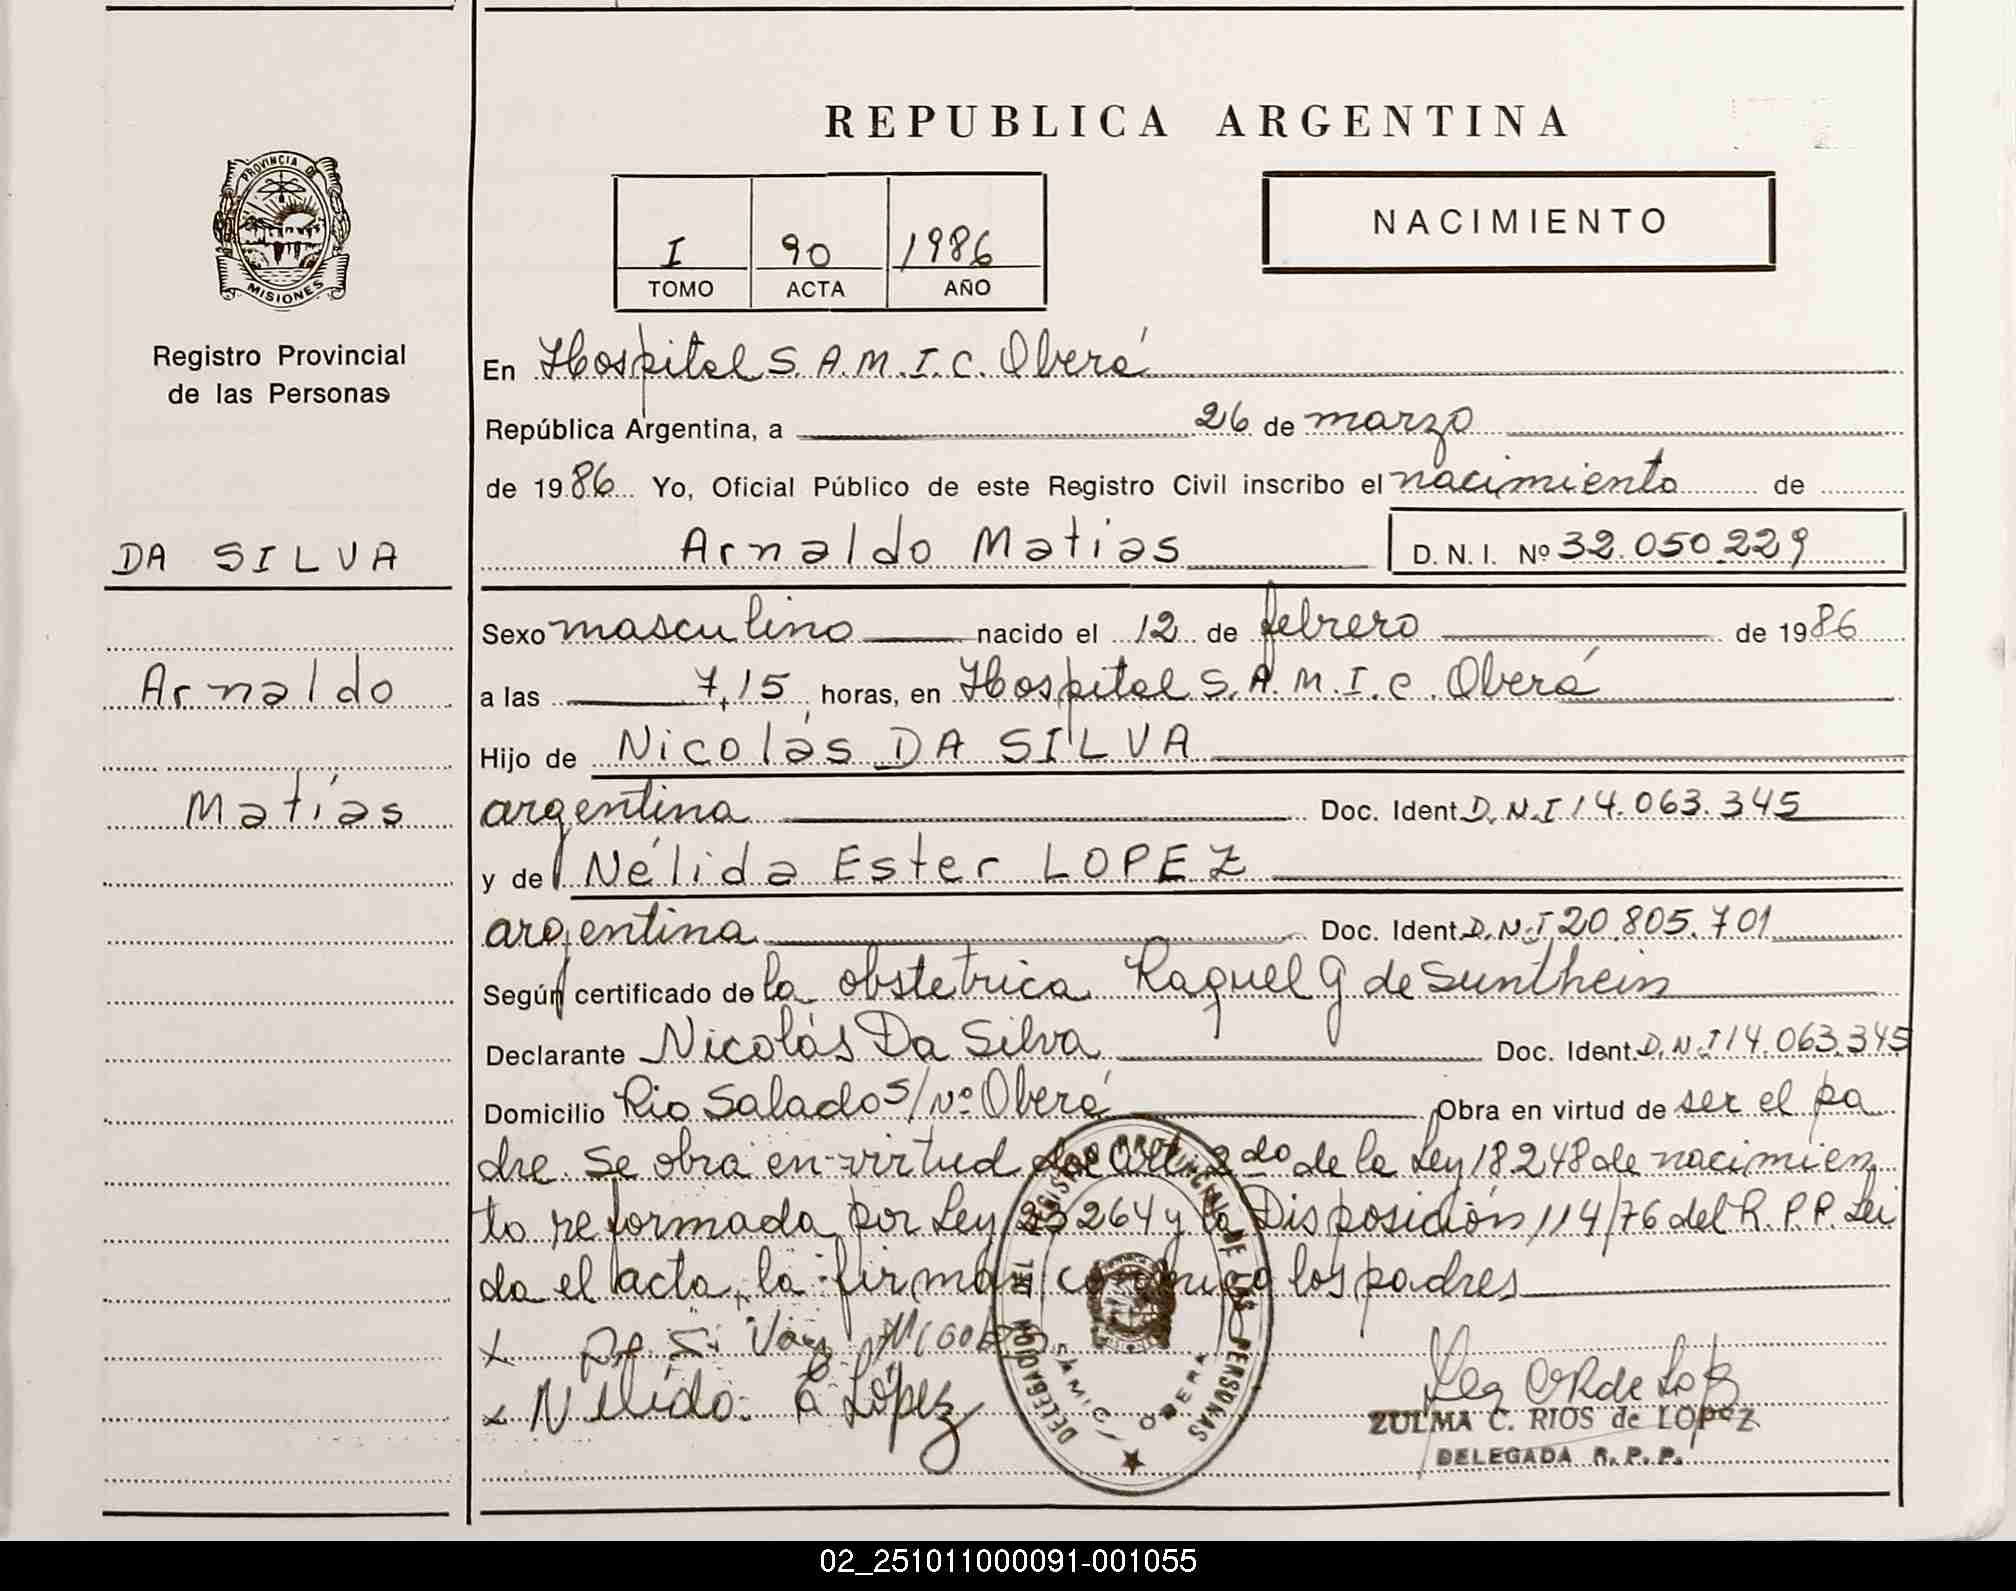 REPUBLICA ARGENTINA
PROVINCIA DE
MISIONES
Registro Provincial
de las Personas
I 90 1986
TOMO ACTA AÑO
NACIMIENTO
En Hospital S.A.M.I.C. Oberá
República Argentina, a 26 de marzo
de 1986 Yo, Oficial Público de este Registro Civil inscribo el nacimiento de
Arnaldo Matías D. N. I. Nº 32.050.229
DA SILVA
Arnaldo
Matías
Sexo masculino nacido el 12 de febrero de 1986
a las 7,15 horas, en Hospital S.A.M.I.C. Oberá
Hijo de Nicolás DA SILVA
argentina Doc. Ident. D.N.I 14.063.345
y de Nélida Ester LOPEZ
argentina Doc. Ident. D.N.I 20.805.701
Según certificado de la obstetrica Raquel G de Sunthein
Declarante Nicolás Da Silva Doc. Ident. D.N.I 14.063.345
Domicilio Rio Salado S/Nº Oberá Obra en virtud de ser el pa
dre. Se obra en virtud del Art. 2do de la Ley 18248 de nacimien
to reformada por Ley 23264 y la Disposición 114/76 del R.P.P. Lei
da el acta, la firman conmigo los padres
x
x Nelida E López
REGISTRO PROVINCIAL DE LAS PERSONAS
DELEGACION
SAMIC OBERA
ZULMA C. RIOS de LOPEZ
DELEGADA R. P. P.
02_251011000091-001055